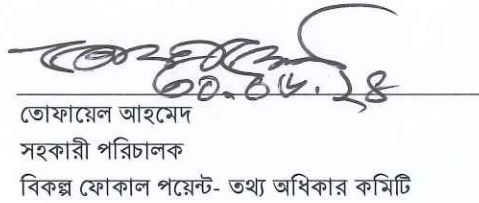 তোফায়েল আহমেদ
সহকারী পরিচালক
বিকল্প ফোকাল পয়েন্ট- তথ্য অধিকার কমিটি